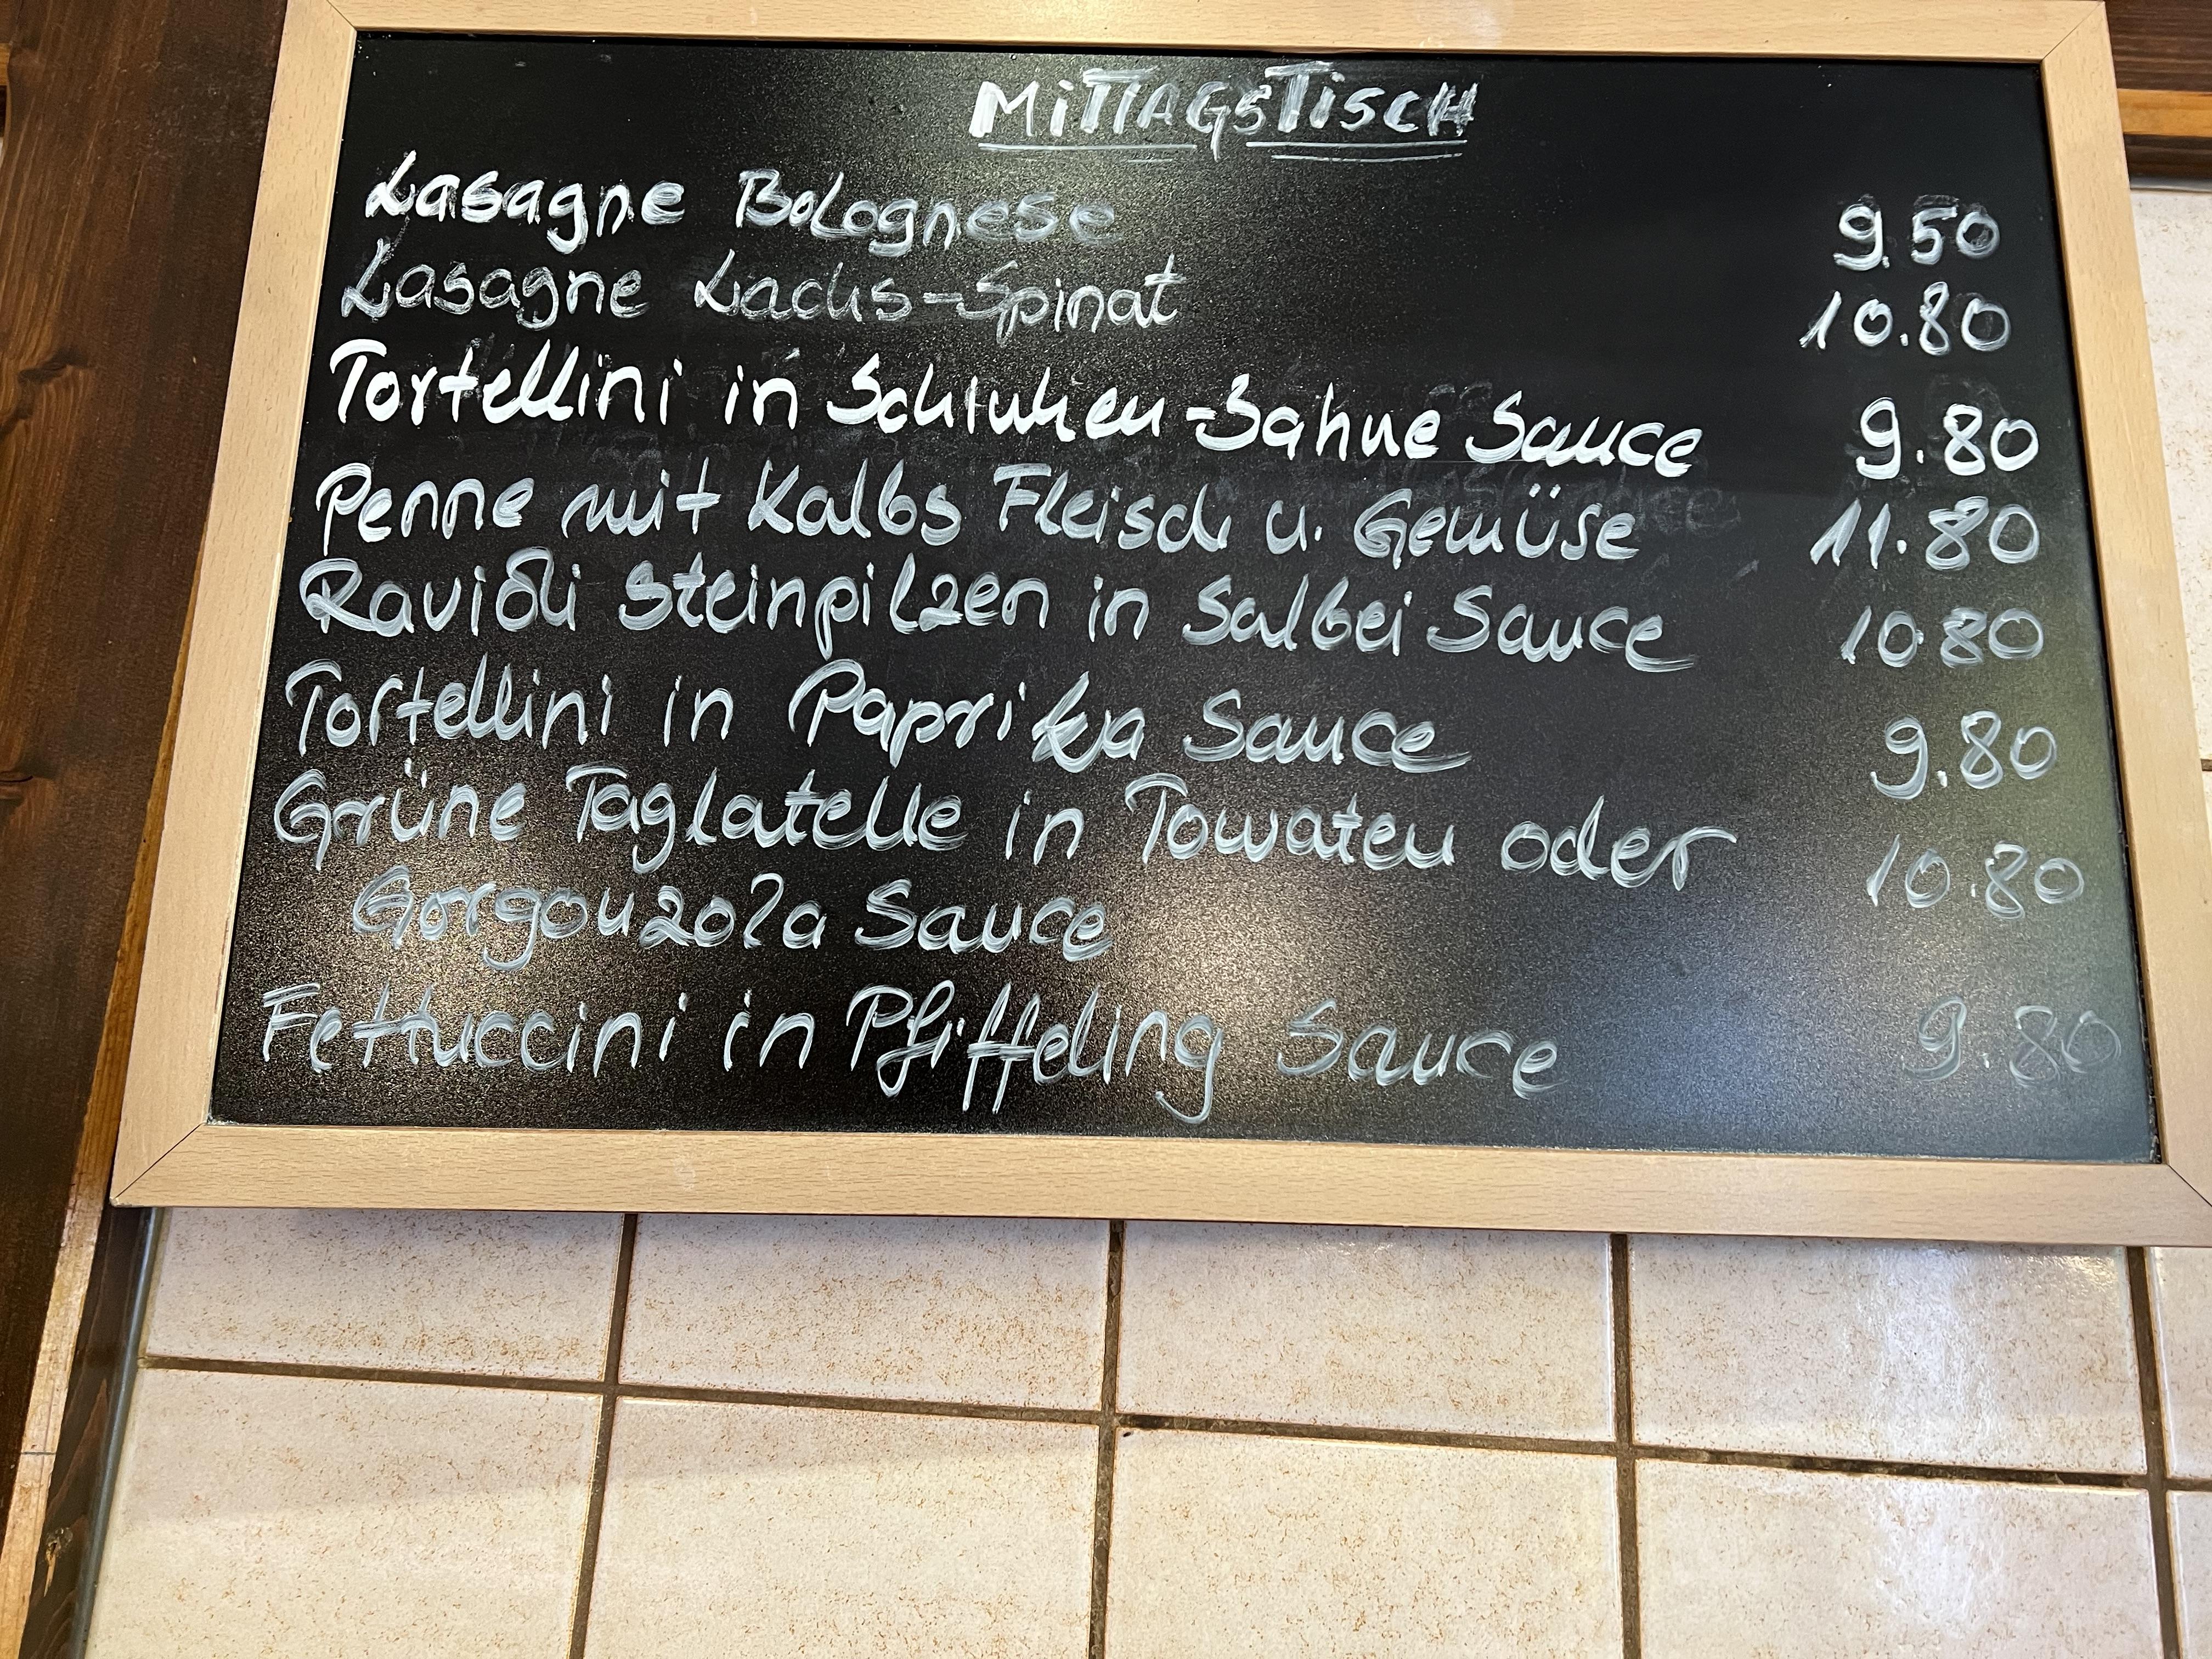 MiTTAGSTiSCH
Lasagne Bolognese 9.50
Lasagne Lachs-Spinat 10.80
Tortellini in Schinken-Sahne Sauce 9.80
Penne mit Kalbs Fleisch u. Gemüse 11.80
Ravioli Steinpilzen in Salbei Sauce 10.80
Tortellini in Paprika Sauce 9.80
Grüne Taglatelle in Tomaten oder 10.80
Gorgonzola Sauce
Fettuccini in Pfiffeling Sauce 9.80